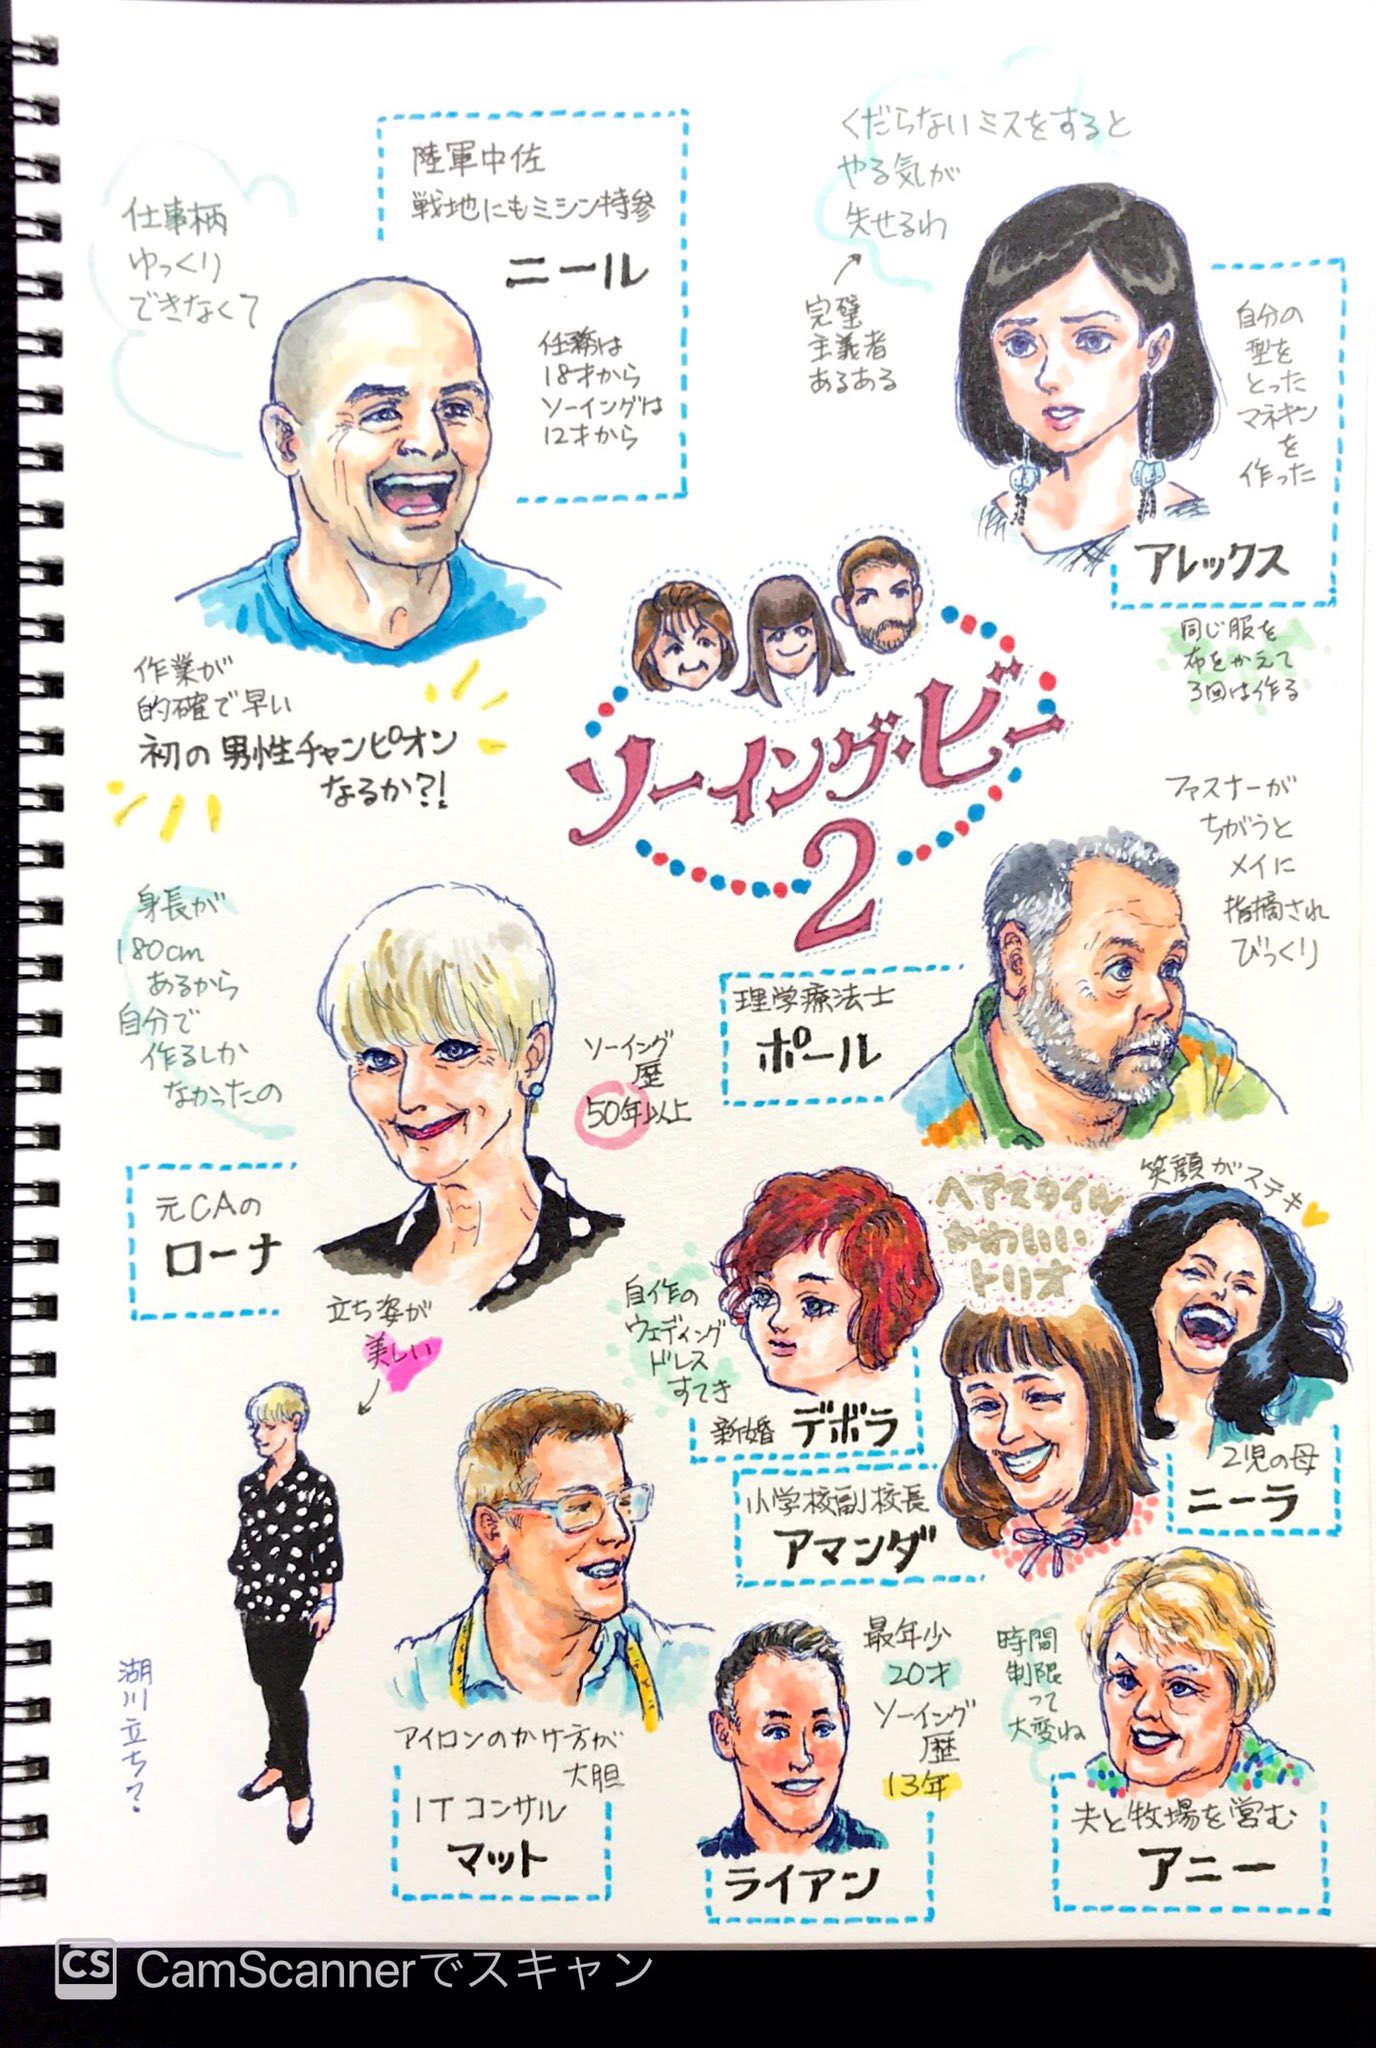 陸軍中佐
戦地にもミシン持参
ニール
任務は
18才から
ソーイングは
12才から
仕事柄
ゆっくり
できなくて
作業が
的確で早い
初の男性チャンピオン
なるか?!
くだらないミスをすると
やる気が
失せるわ
完璧
主義者
あるある
自分の
型を
とった
マネキン
を
作った
アレックス
同じ服を
布をかえて
3回は作る
ソーイング・ビー
2
ファスナーが
ちがうと
メイに
指摘され
びっくり
理学療法士
ポール
身長が
180cm
あるから
自分で
作るしか
なかったの
ソーイング
歴
50年以上
元CAの
ローナ
立ち姿が
美しい
湖川立ち?
ヘアスタイル
かわいい
トリオ
自作の
ウェディング
ドレス
すてき
新婚 デボラ
笑顔がステキ
2児の母
ニーラ
小学校副校長
アマンダ
アイロンのかけ方が
大胆
ITコンサル
マット
最年少
20才
ソーイング
歴
13年
ライアン
時間
制限
って
大変ね
夫と牧場を営む
アニー
CS CamScannerでスキャン